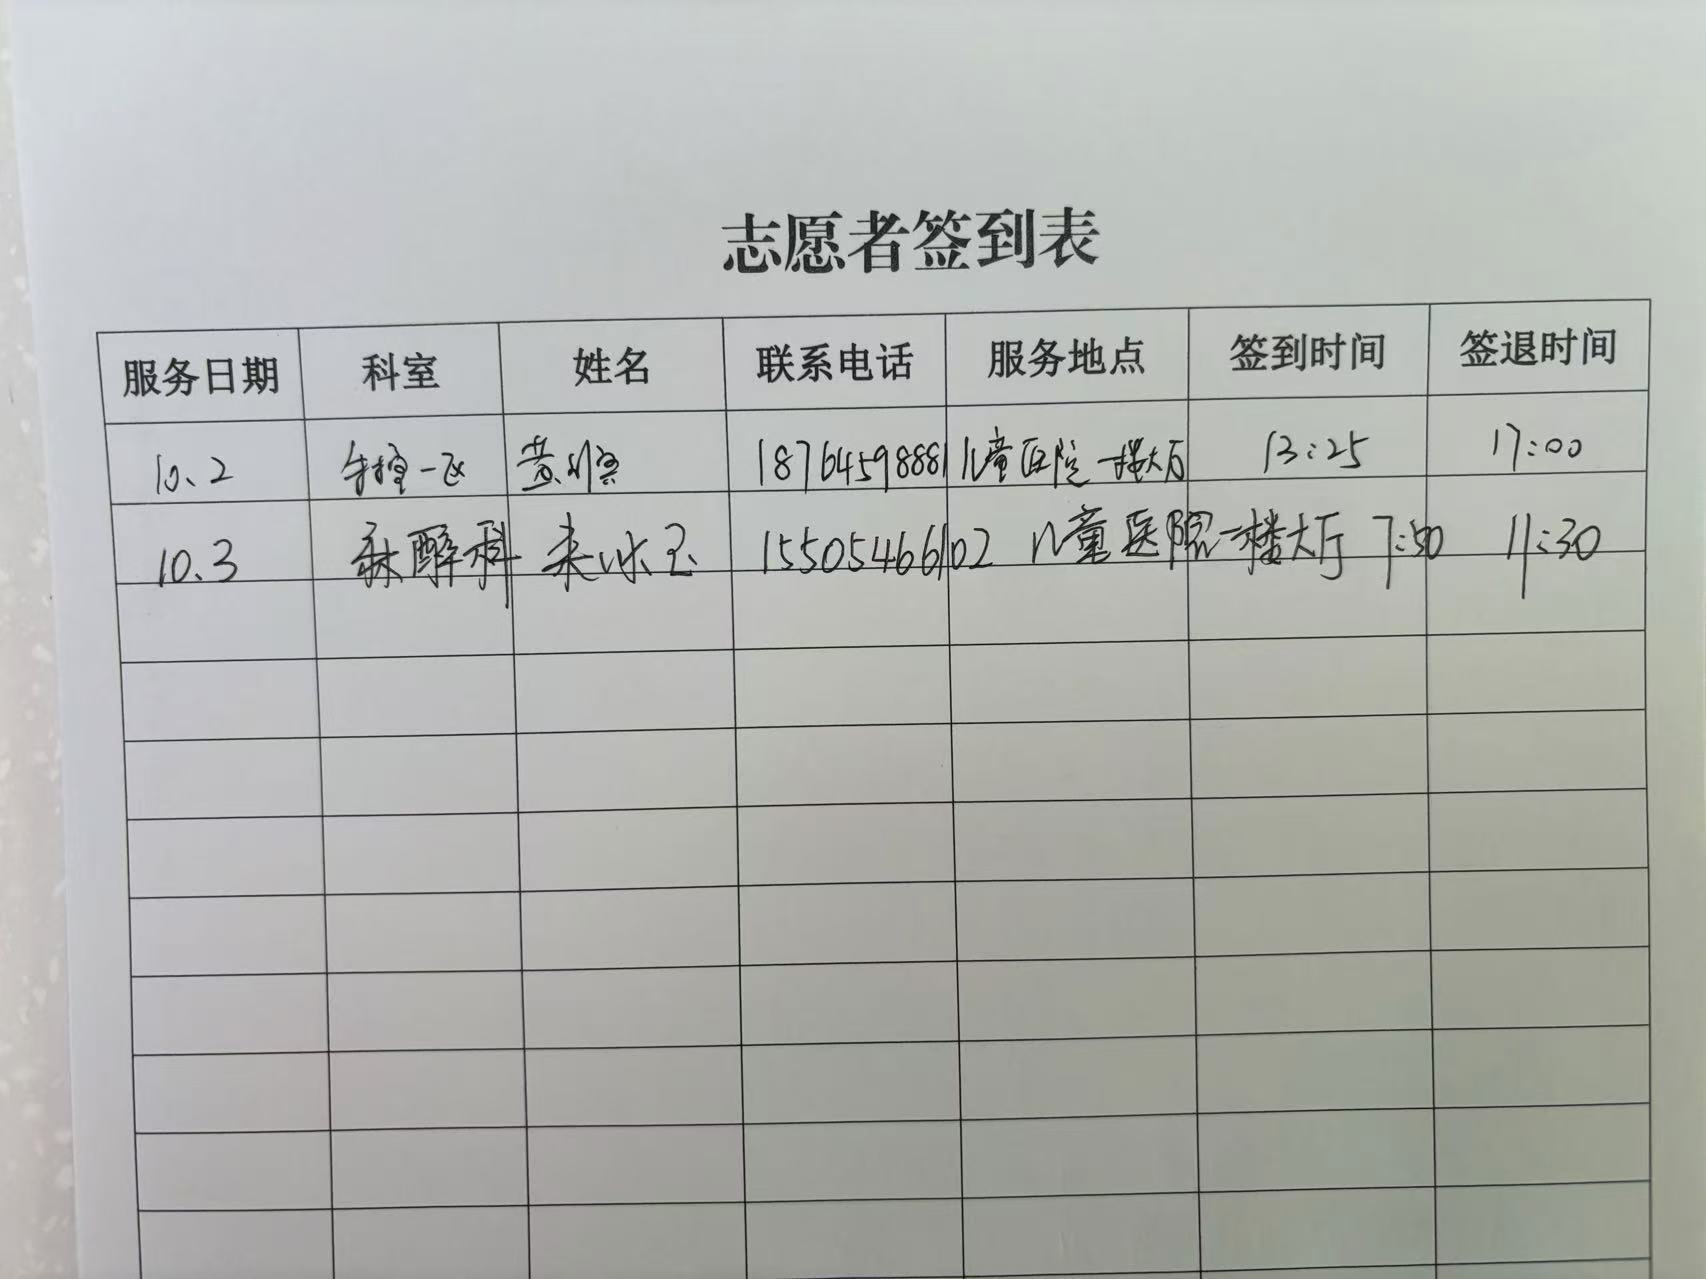 志愿者签到表
服务日期 科室 姓名 联系电话 服务地点 签到时间 签退时间
10.2 一区 黄 18764598881 儿童医院一楼大厅 13:25 17:00
10.3 麻醉科 来冰玉 15505466102 儿童医院一楼大厅 7:50 11:30